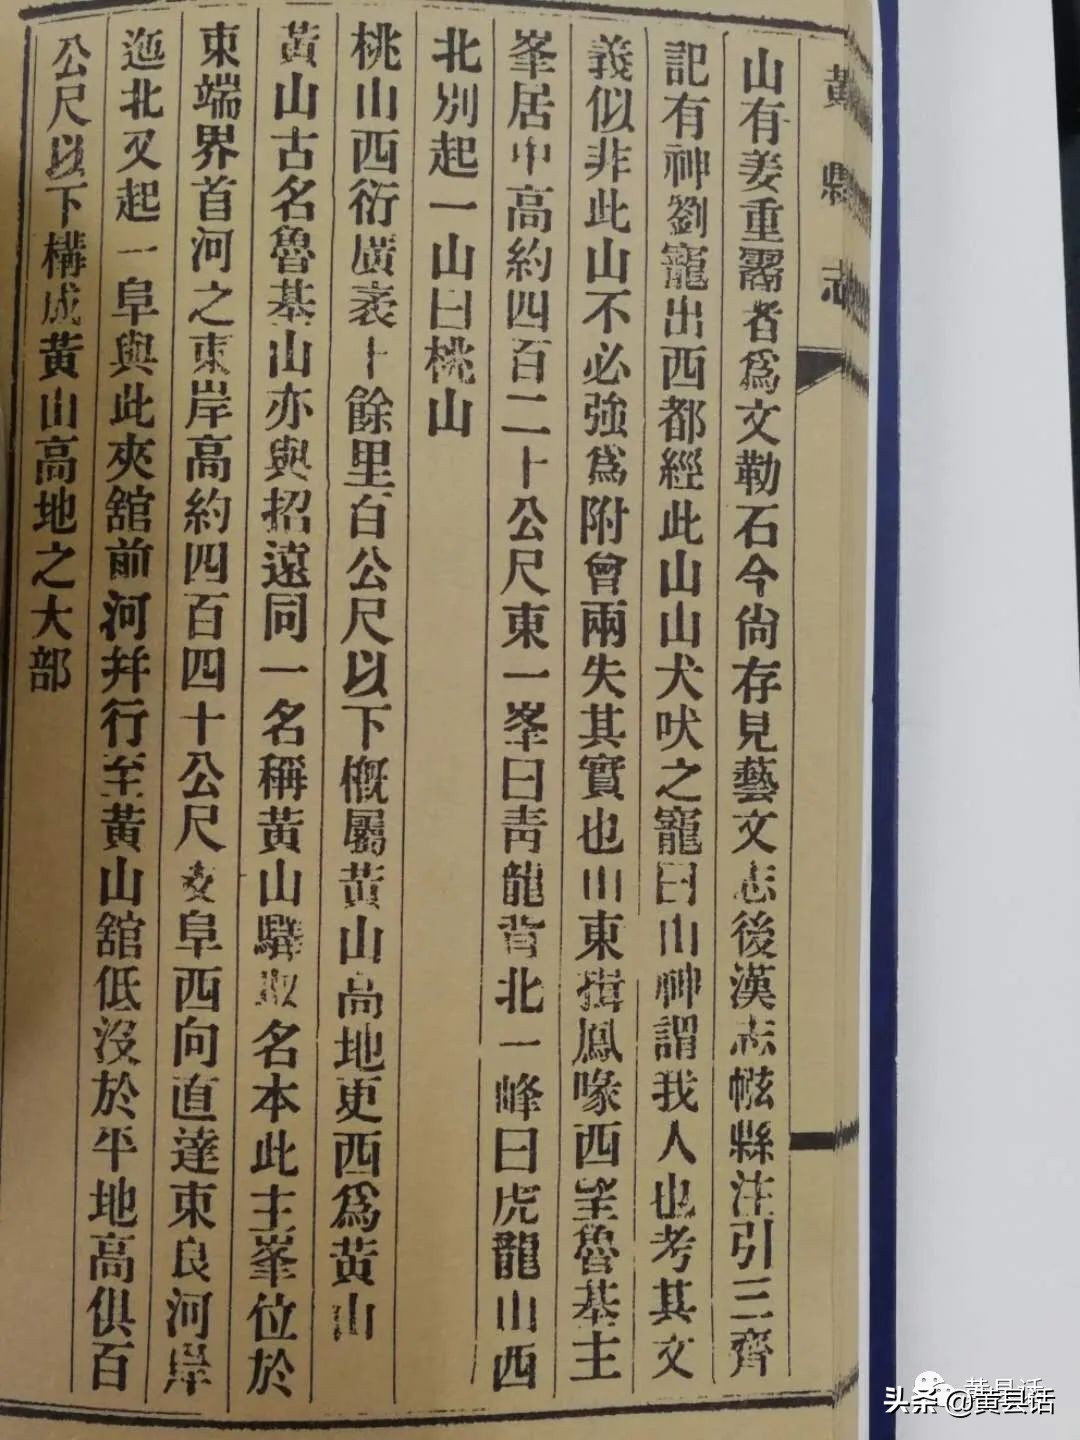 黃縣志
山有姜重 者爲文勒石今尙存見藝文志後漢志㡉縣注引三齊
記有神劉寵出西都經此山山犬吠之寵曰山神謂我人也考其文
義似非此山不必強爲附會兩失其實也山東揖鳳喙西望魯基主
峯居中高約四百二十公尺東一峯曰青龍背北一峰曰虎龍山西
北別起一山曰桃山
桃山西衍廣袤十餘里百公尺以下概屬黃山高地更西爲黃山
黃山古名魯基山亦與招遠同一名稱黃山驛取名本此主峯位於
東端界首河之東岸高約四百四十公尺 阜西向直達東良河岸
迤北又起一阜與此夾舘前河幷行至黃山舘低沒於平地高俱百
公尺以下構成黃山高地之大部
黄县话
头条 @黄县话